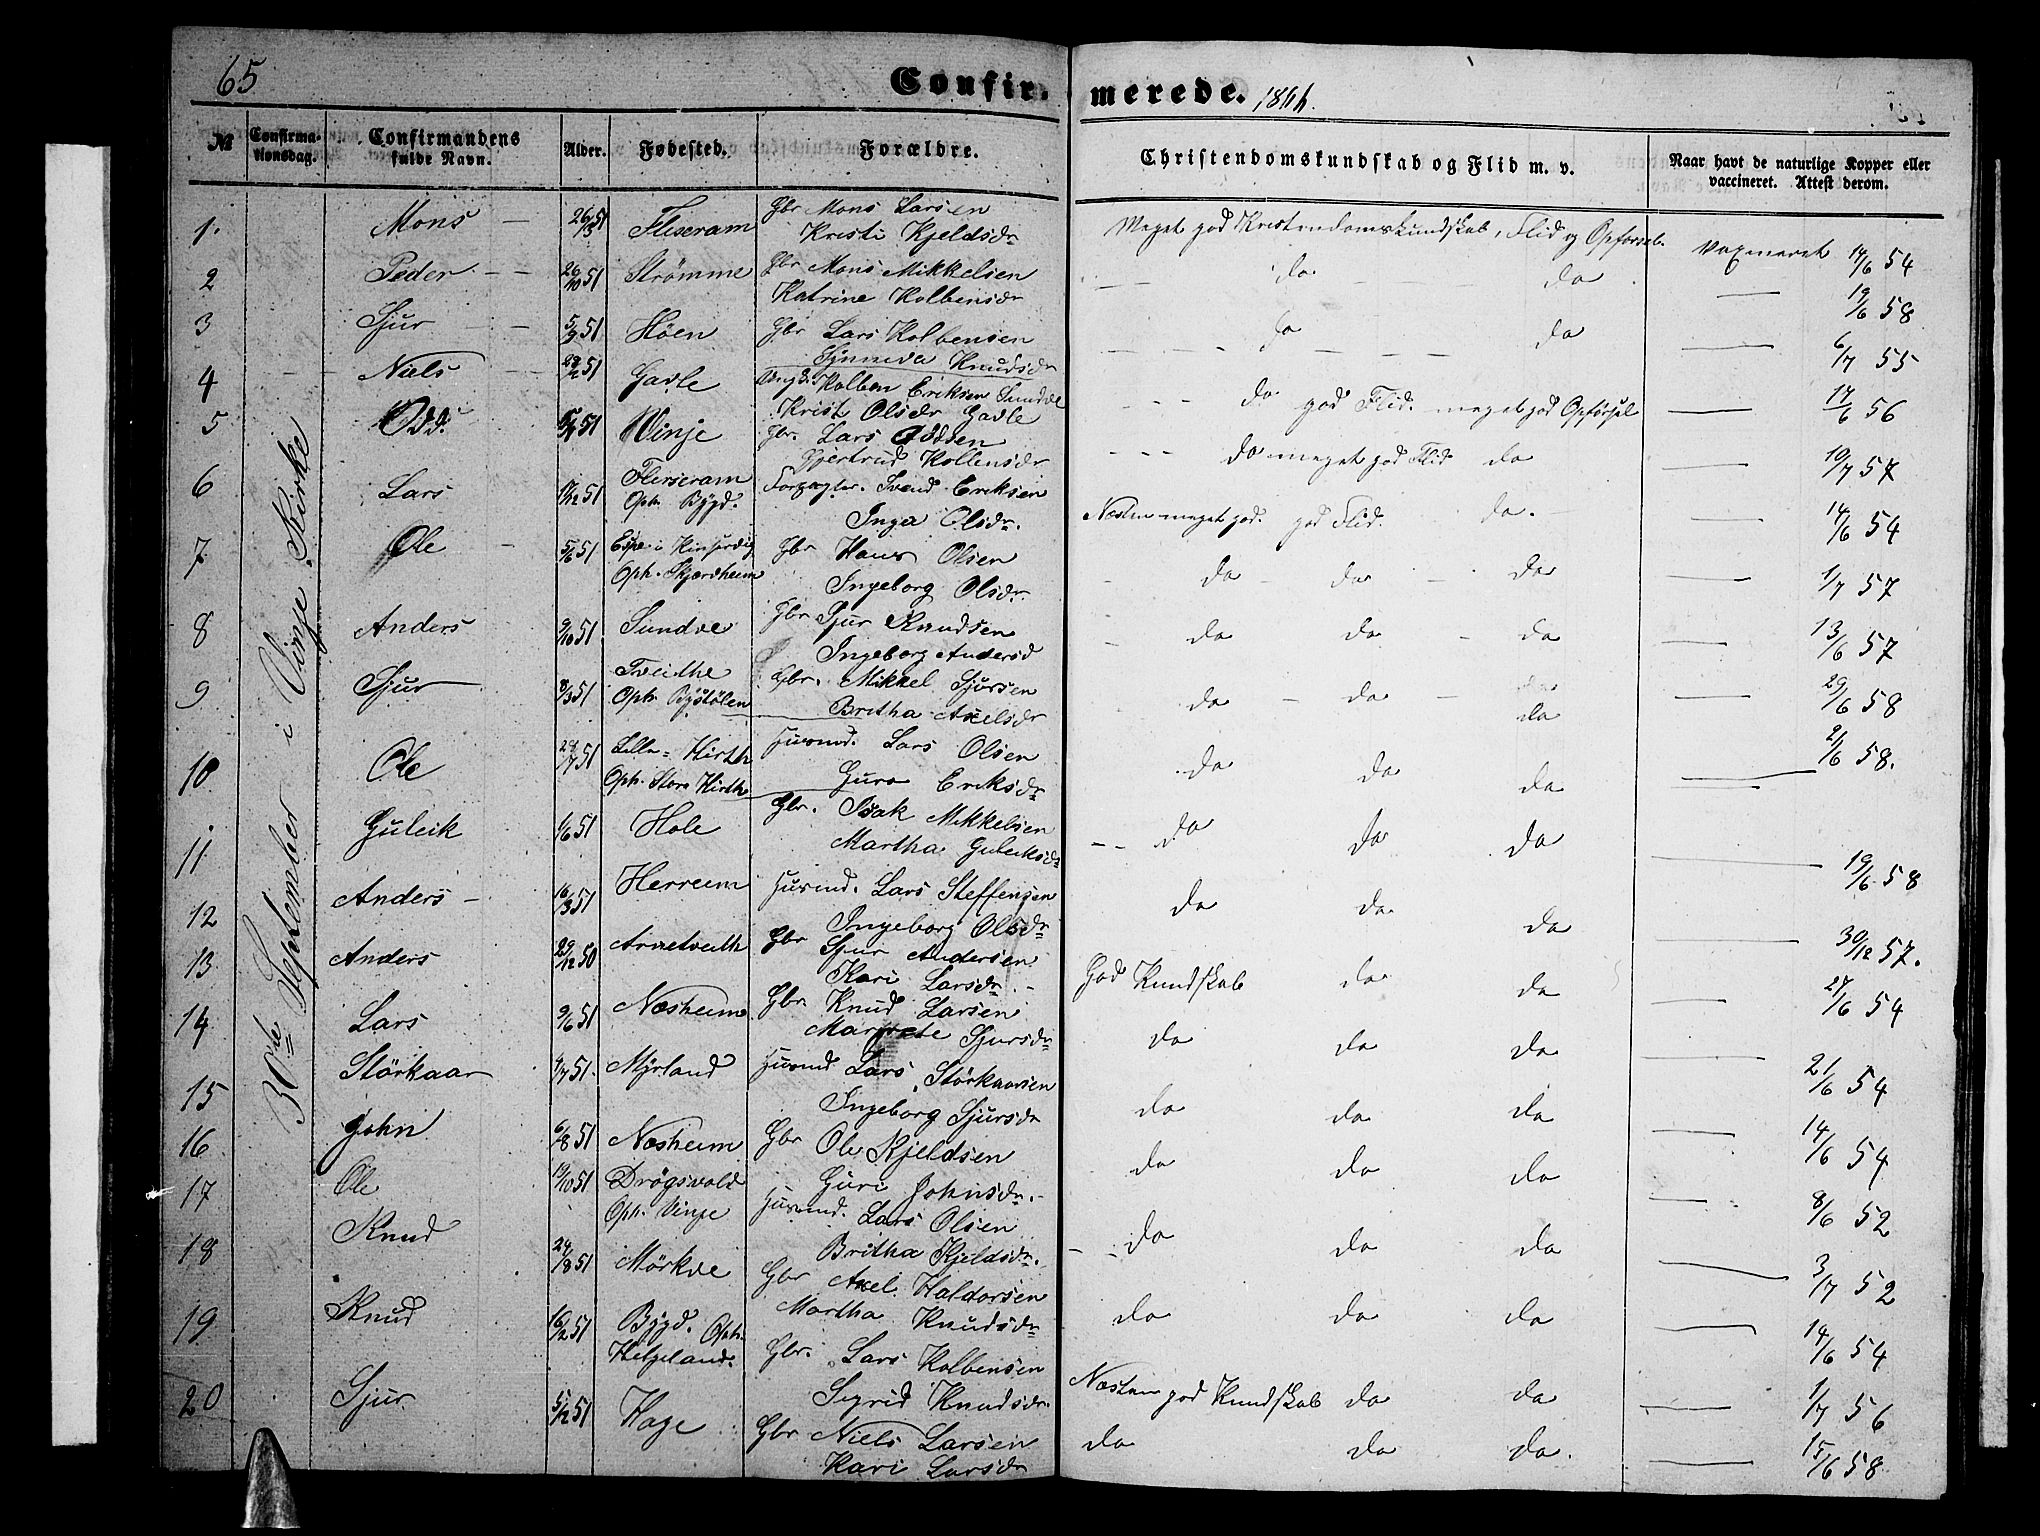 65
Confirmerede. 1866.
№
Confirmationsdag.
Confirmandens fulde Navn.
Alder.
Fødested.
Forældre.
Christendomskundskab og Flid m. v.
Naar havt de naturlige Kopper eller vaccineret. Attest derom.
30te September i Vinje Kirke
1. Mons 51 Fliseram Gbr Mons Larsen Meget god Kristendomskundskab, Flid og Opførsel. Vaxineret 14/6 54
Kristi Kjeldsdr
2 Peder 51 Strømme Gbr Mons Mikkelsen do do 19/6 58
Katrine Kolbensdr
3 Sjur 51 Høen Gbr Lars Kolbensen do do 6/7 55
Synneva Knudsdr
4 Niels 51 Gavle Ungk. Kolben Eriksen Sundve do god Flid. meget god Opførsel 14/6 56
Krist Olsdr Gavle
5 Odd. 51 Vinje Gbr. Lars Oddsen do meget god Flid do 10/7 57
Gjertrud Kolbensdr
6 Lars 51 Fliseram Svend Eriksen Næsten meget god. god Flid. do. 14/6 54
Oph. Bygd. Inga Olsdr.
7 Ole 5/6 51 Espe i Kinservig Gbr Hans Olsen do do do 1/7 57
Oph. Skjerdheim Ingeborg Olsdr.
8 Anders 9/10 51 Sundve Gbr Sjur Knudsen do do do 13/6 57
Ingeborg Andersd
9 Sjur 8/3 51 Tveithe Gbr. Mikkel Sjursen do do do 29/6 58
Oph. Bystølen Britha Axelsdr
do
10 Ole 51 Lille Hirth Huusmd. Lars Olsen do do do 21/6 58.
Oph. Store Hirth Guro Eriksdr
11 Guleik 1/6 51 Hole Gbr. Isak Mikkelsen do do do 19/6 58
Martha Guleiksdr
12 Anders 16/3 51 Herreim Huusmd. Lars Steffensen do do do 30/12 57.
Ingeborg Olsdr
13 Anders 29/12 50 Arnetveith Gbr Sjur Andersen God Kundskab do do 27/6 54
Kari Larsdr.
14 Lars 9/6 51 Næsheim Gbr. Knud Larsen do do do 21/6 54
Margrete Sjursdr
15 Störkaar 1/7 51 Myrland Huusmd Lars Störkaarsen do do do 14/6 54
Ingeborg Sjursdr
16 John 6/8 51 Næsheim Gbr Ole Kjeldsen do do do 8/6 52
Guri Johnsdr.
17 Ole 19/10 51 Drøgsvold Huusmd. Lars Olsen do do do 3/7 52
Oph. Vinje Britha Kjeldsdr.
18 Knud 24/8 51 Mörkve Gbr Axel Haldorsen do do do 14/6 54
Martha Knudsdr
19 Knud 16/12 51 Bygd. Oph. Gbr. Lars Kolbensen Næsten god Kundskab do do 1/7 56
Helgeland. Sigrid Knudsdr.
20 Sjur 5/12 51 Hage Gbr Niels Larsen do do do. 15/6 58
Kari Larsdr